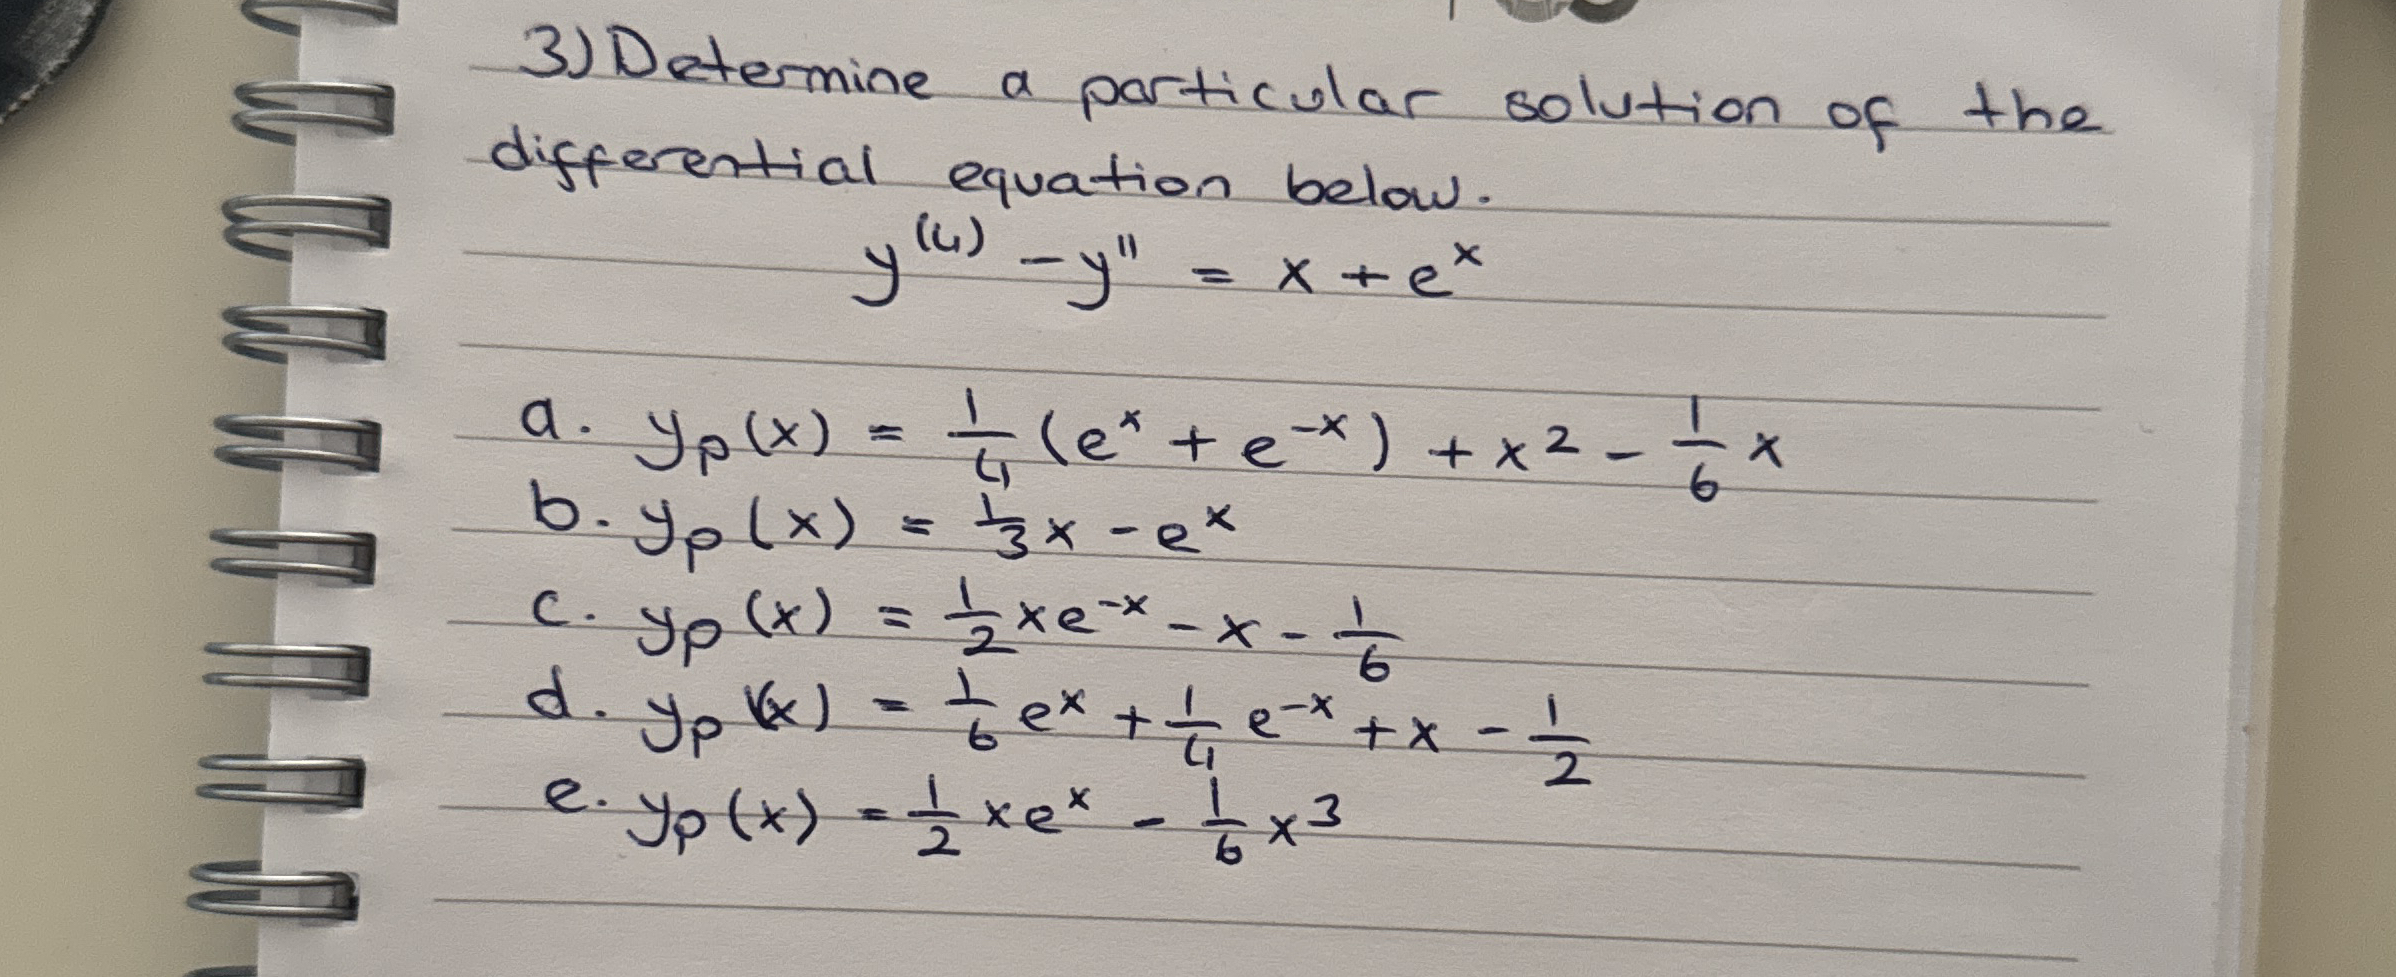 3) Determine a particular solution of the
differential equation below.
y⁽⁴⁾ - y" = x + eˣ
a. yₚ(x) = 1/4 (eˣ + e⁻ˣ) + x² - 1/6 x
b. yₚ(x) = 1/3 x - eˣ
c. yₚ(x) = 1/2 xe⁻ˣ - x - 1/6
d. yₚ(x) = 1/6 eˣ + 1/4 e⁻ˣ + x - 1/2
e. yₚ(x) = 1/2 xeˣ - 1/6 x³